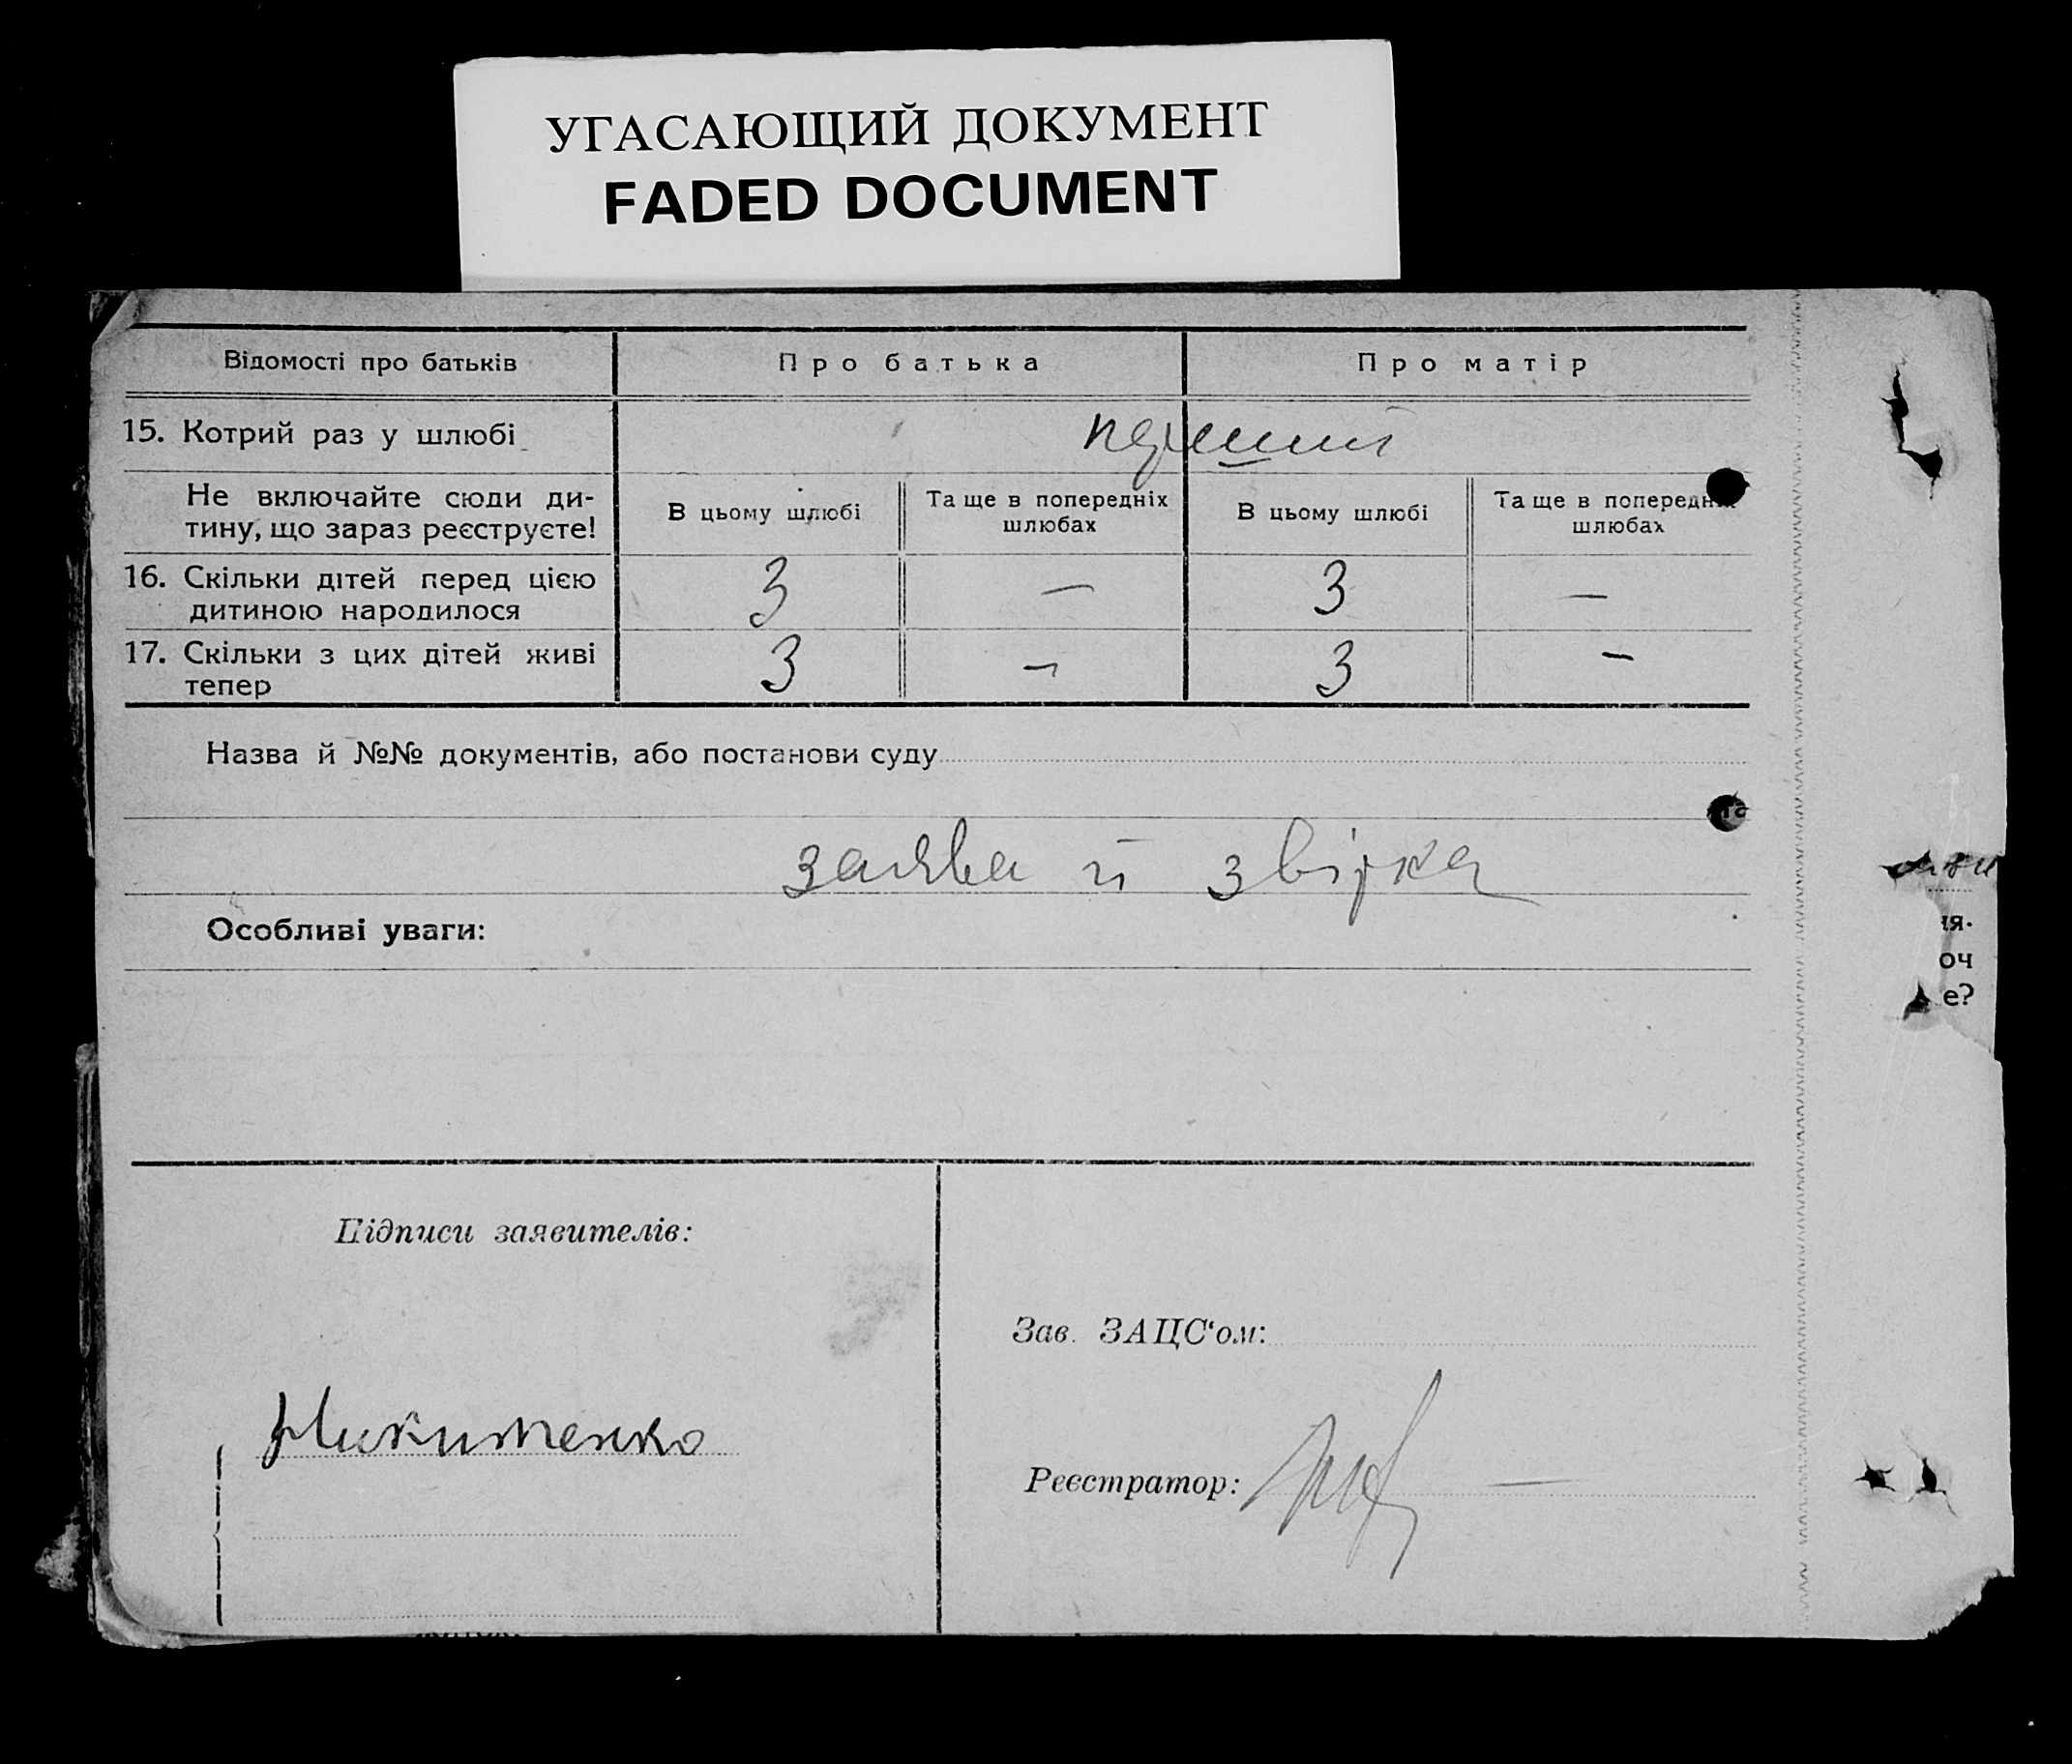 УГАСАЮЩИЙ ДОКУМЕНТ
FADED DOCUMENT
Відомості про батьків
Про батька
Про матір
15. Котрий раз у шлюбі
перший
Не включайте сюди ди-
тину, що зараз реєструєте!
В цьому шлюбі
Та ще в попередніх
шлюбах
В цьому шлюбі
Та ще в попередніх
шлюбах
16. Скільки дітей перед цією
дитиною народилося
3
—
3
—
17. Скільки з цих дітей живі
тепер
3
—
3
—
Назва й №№ документів, або постанови суду
заява й звірка
Особливі уваги:
ія.
оч
е?
Підписи заявителів:
Никитенко
Зав. ЗАЦС'ом:
Реєстратор: